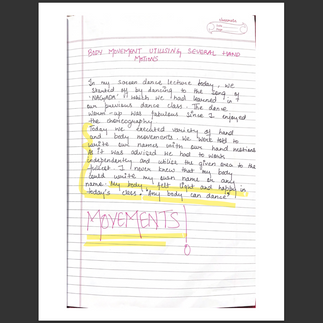 classmate
Date
Page
BODY MOVEMENT UTILISING SEVERAL HAND
MOTIONS
In my soceon dance lecture today, we
started off by dancing to the song of
"NAGADA" which we had learned in
our previous dance class. The dance
warm-up was fabulous since I enjoyed
the choreography.
Today we executed variety of hand
and body movements. We were told to
write our names with our hand motions
As it was advised we had to work
independently and utilise the given area to the
fullest. I never knew that my body
could write my own name or any
name. My body felt light and happy in
today's class. "Any body can dance"
MOVEMENTS!